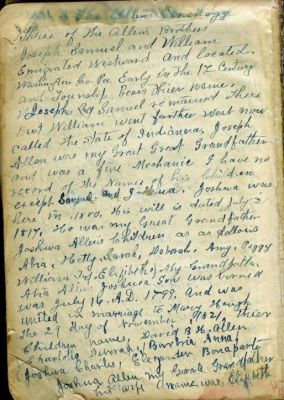 Allen Geneology
Three of the Allen Brothers
Joseph Samuel and William
Emigrated Westward and Located
Washington Co. Pa Early in the 17 Century
and Township Bears Thier Name,
Joseph & Samuel remained There
but William went farther West now
called the State of Indianna, Joseph
Allen was my Great Great Grandfather
and was a fine Mechanic I have no
record of the Names of his Children
except Samuel and Joshua. Joshua was
here in 1800. His will is dated July 2
1817. He was my Great Grandfather
Joshua Allen's Children as as follows
Abia, Hetty, Sarah, Deborah, Amy, Peggy
William, Elizibeth, My Grandfather
Abia Allen Joshua Son was borned
was July 16. A.D. 1799, and was
united in marriage to Mary Hough
The 29 day of November 1821, Thier
Children names, David B. H. Allen
Barbria Anna,
Joshua Charles, Elexander Bonapart
Joshua Allen my Grate Grandfather
his wife name was Elizibeth